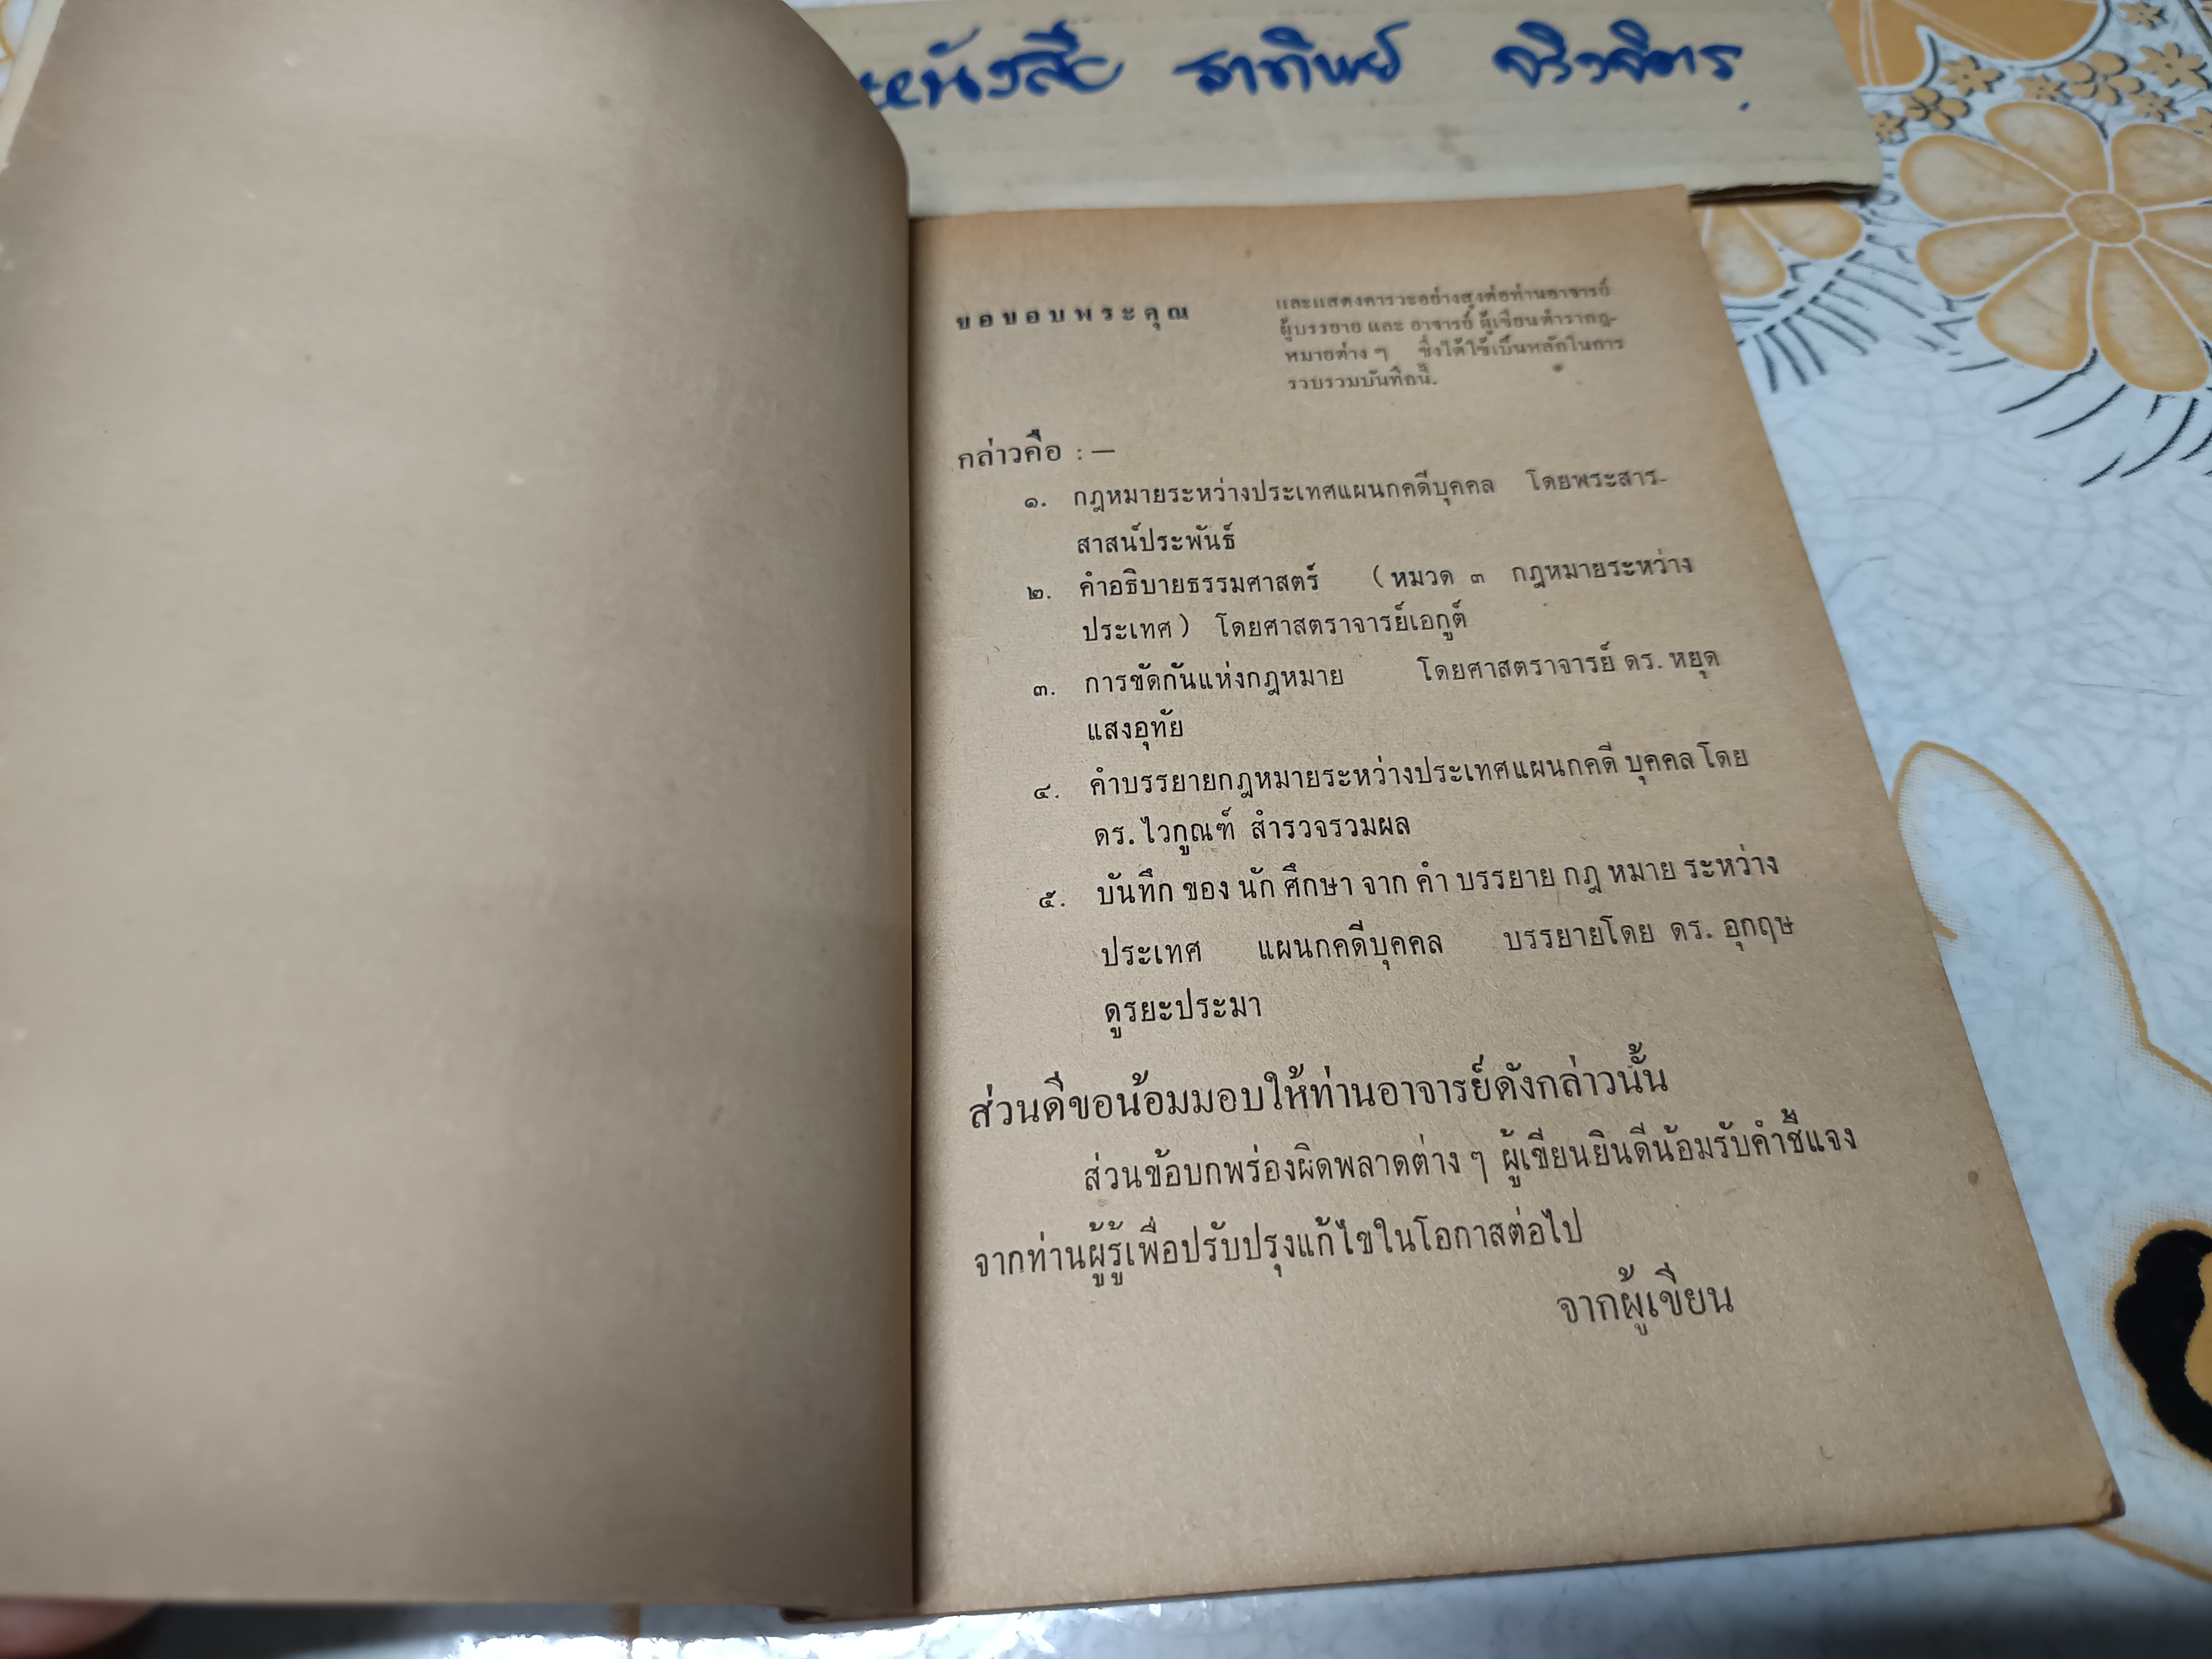 หนังสือ ธาทิพย์ จริงจิตร
ขอขอบพระคุณ
และแสดงคารวะอย่างสูงต่อท่านอาจารย์
ผู้บรรยาย และ อาจารย์ ผู้เขียนตำรากฎ-
หมายต่าง ๆ ซึ่งได้ใช้เป็นหลักในการ
รวบรวมบันทึกนี้.
กล่าวคือ : —
๑. กฎหมายระหว่างประเทศแผนกคดีบุคคล โดยพระสาร-
สาสน์ประพันธ์
๒. คำอธิบายธรรมศาสตร์ (หมวด ๓ กฎหมายระหว่าง
ประเทศ) โดยศาสตราจารย์เอกูต์
๓. การขัดกันแห่งกฎหมาย โดยศาสตราจารย์ ดร. หยุด
แสงอุทัย
๔. คำบรรยายกฎหมายระหว่างประเทศแผนกคดี บุคคล โดย
ดร. ไวกูณฑ์ สำรวจรวมผล
๕. บันทึก ของ นัก ศึกษา จาก คำ บรรยาย กฎ หมาย ระหว่าง
ประเทศ แผนกคดีบุคคล บรรยายโดย ดร. อุกฤษ
ดูรยะประมา
ส่วนดีขอน้อมมอบให้ท่านอาจารย์ดังกล่าวนั้น
ส่วนข้อบกพร่องผิดพลาดต่าง ๆ ผู้เขียนยินดีน้อมรับคำชี้แจง
จากท่านผู้รู้เพื่อปรับปรุงแก้ไขในโอกาสต่อไป
จากผู้เขียน